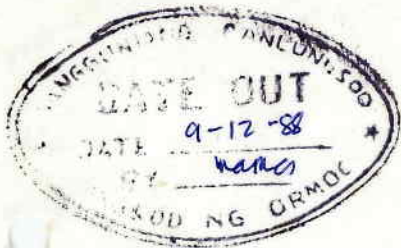 SANGGUNIANG PANLUNGSOD
DATE OUT
DATE 9-12-88
BY
LUNGSOD NG ORMOC